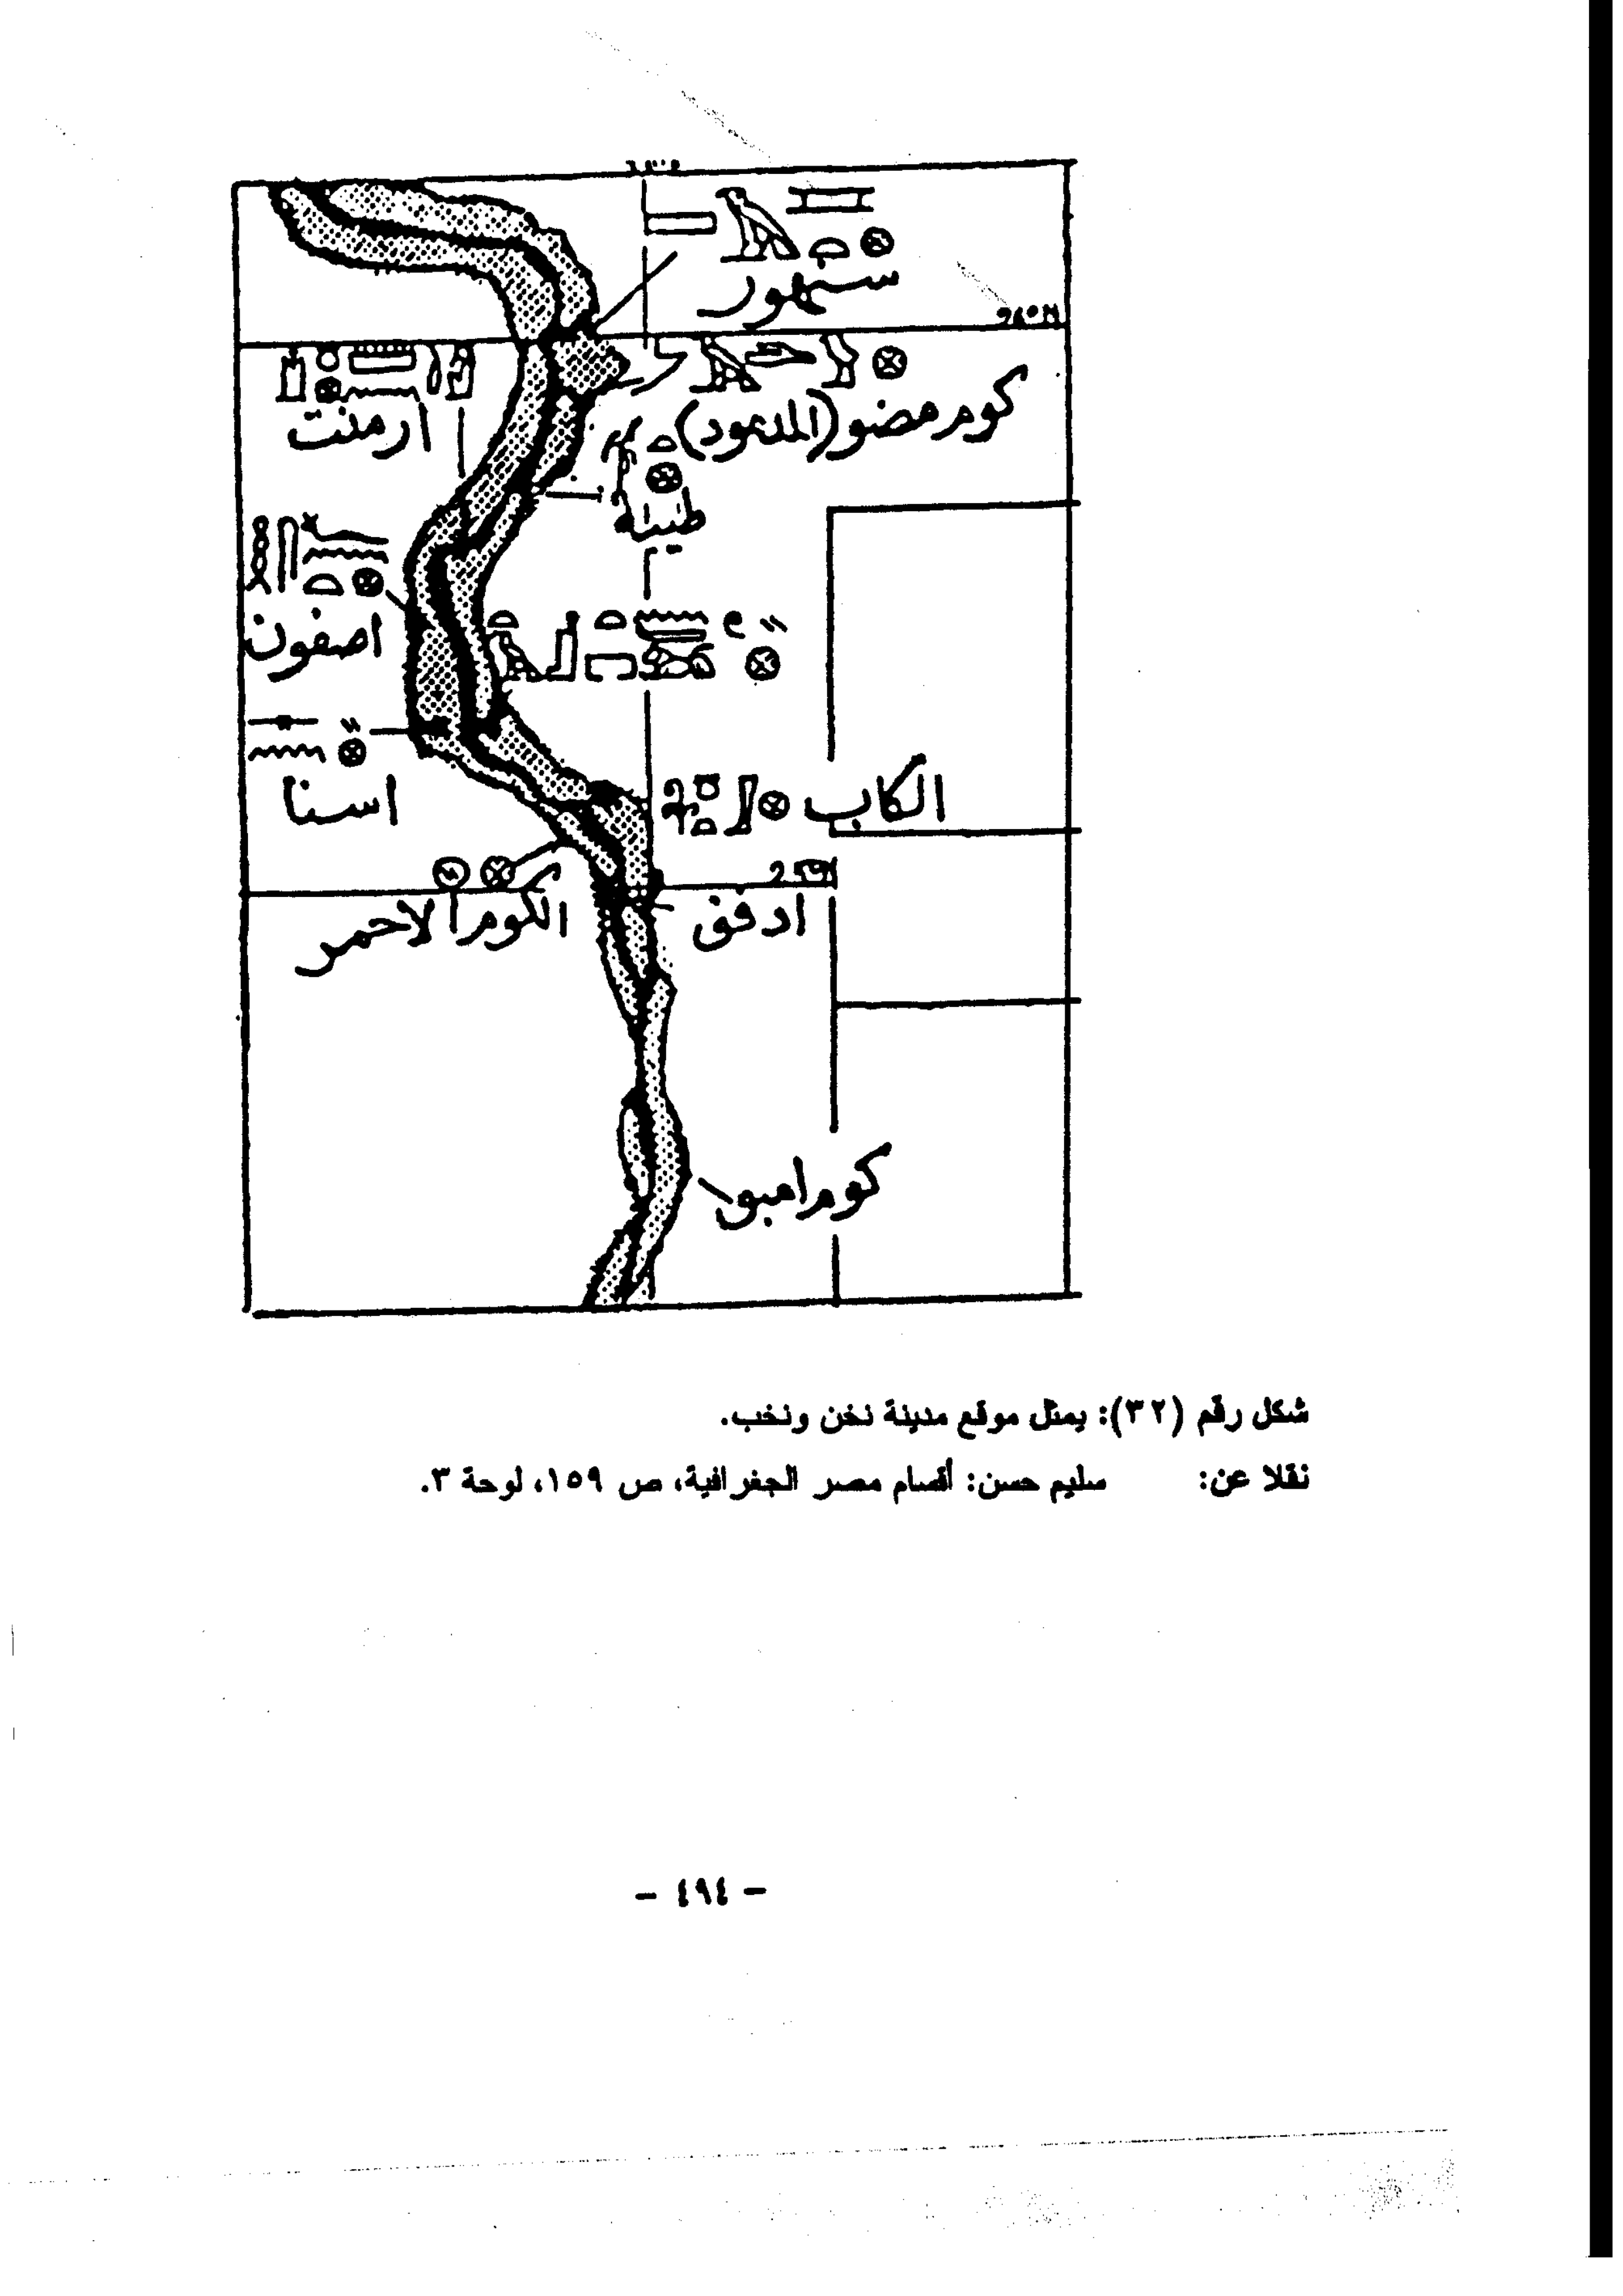 سنهور
كوم مضو (المدمود)
ارمنت
طيبة
اصفون
اسنا
الكاب
الكوم الاحمر
ادفو
كوم امبو
شكل رقم (٣٢): يمثل موقع مدينة نخن ونخب.
نقلا عن: سليم حسن: أقسام مصر الجغرافية، ص ١٥٩، لوحة ٣.
- ٤٩٤ -